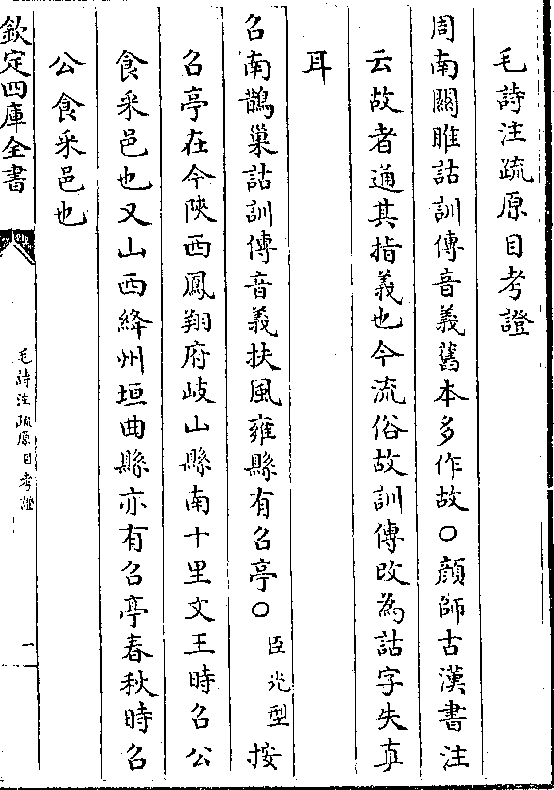 毛詩注疏原目考證
周南關雎詁訓傳音義舊本多作故○顔師古漢書注
云故者通其指義也今流俗故訓傳改為詁字失真
耳
召南鵲巢詁訓傳音義扶風雍縣有召亭○臣光型按
召亭在今陝西鳳翔府岐山縣南十里文王時召公
食采邑也又山西絳州垣曲縣亦有召亭春秋時召
公食采邑也
欽定四庫全書
毛詩注疏原目考證
一